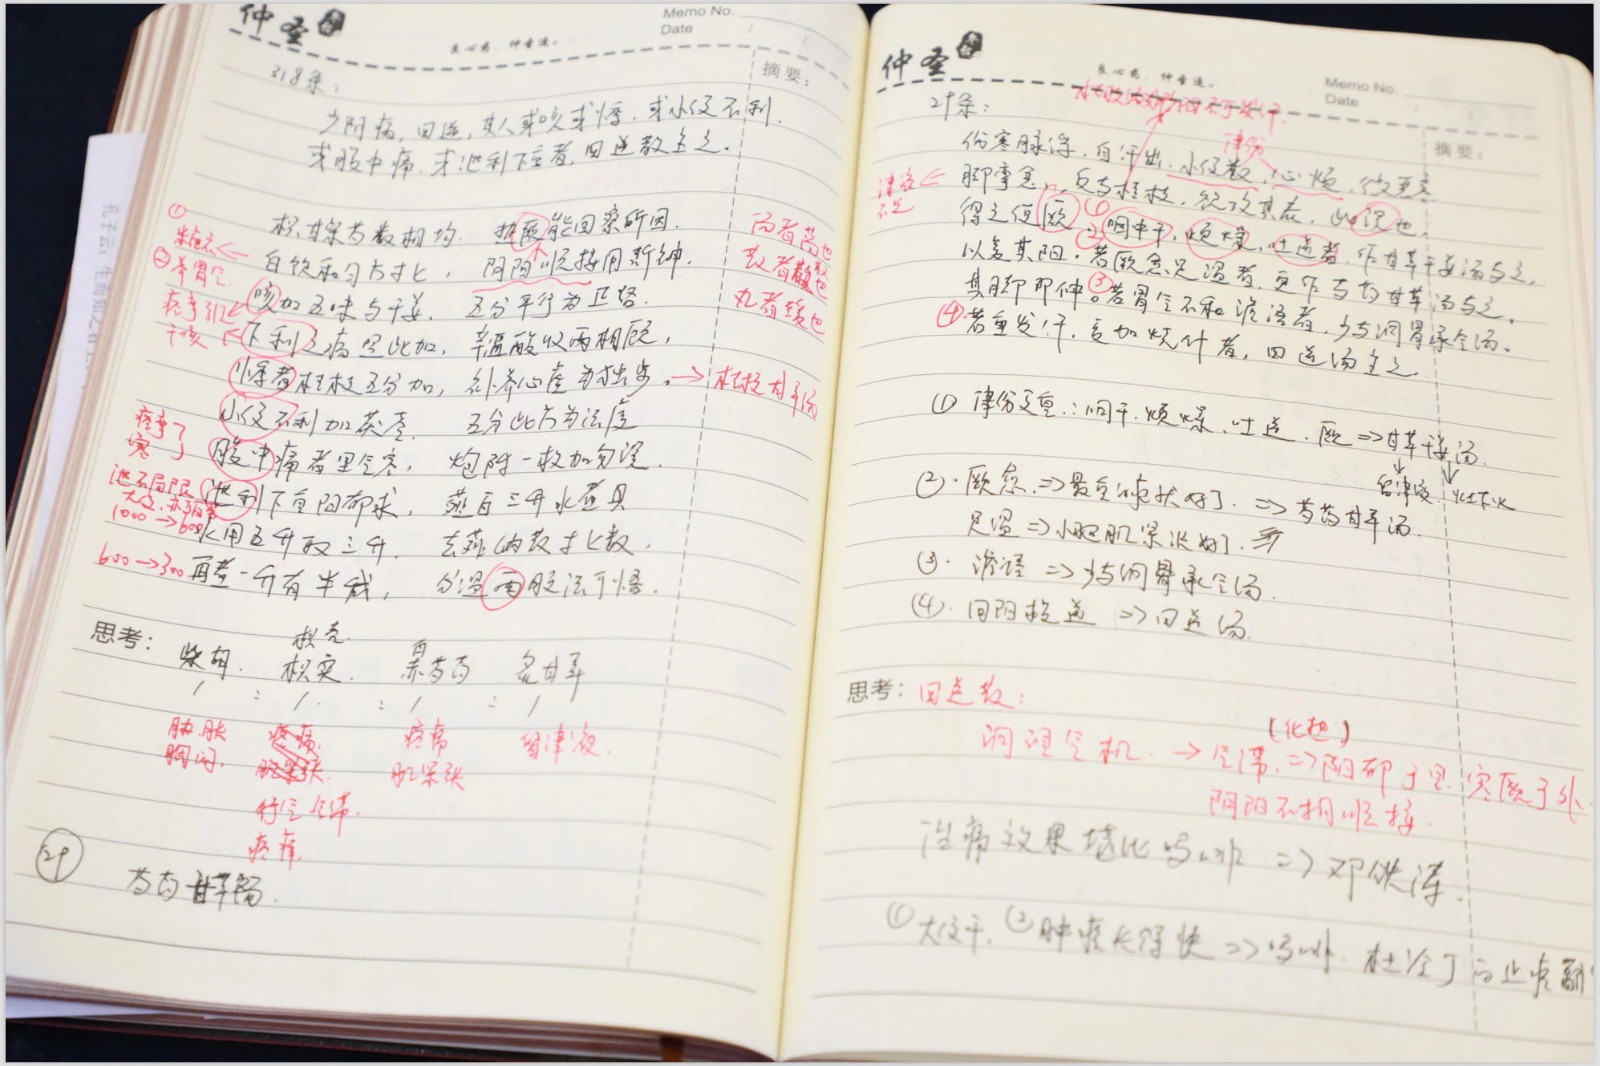 仲圣
良心药，仲奎造。
Memo No.
Date
摘要：
318条：
少阴病，四逆，其人或咳，或悸，或小便不利，
或腹中痛，或泄利下重者，四逆散主之。
枳甘柴芍散相均，热厥能回察所因。
白饮和匀方寸匕，阴阳顺接用斯神。
咳加五味与干姜，五分平行为正路。
下利之病照此加，辛温酸收两相顾。
悸者桂枝五分加，补养心虚为独步。→桂枝甘草汤
小便不利加茯苓，五分此方为法度
腹中痛者里气寒，炮附一枚加勿误。
泄利下重阳郁求，薤白三升水煮具
水用五升取三升，去薤纳散寸匕数。
再煮一升有半成，分温两服法可悟。
①
②养胃气
汤者荡也
散者散也
丸者缓也
痉挛引
干咳
痉挛了
寒了
1000→600
600→300
思考：
枳壳
柴胡 枳实 白芍药 炙甘草
1 : 1 : 1 : 1
胁胀 疼痛 疼痛 留津液
胸闷 肌紧张 肌紧张
行气气滞
疼痛
29
芍药甘草汤
仲圣
良心药，仲奎造。
Memo No.
Date
摘要：
29条：
津伤
伤寒脉浮，自汗出，小便数，心烦，微恶寒
脚挛急，反与桂枝，欲攻其表，此误也，
得之便厥，①②咽中干，烦燥，吐逆者，作甘草干姜汤与之，
以复其阳。若厥愈足温者，更作芍药甘草汤与之。
其脚即伸。③若胃气不和谵语者，少与调胃承气汤。
④若重发汗，复加烧针者，四逆汤主之。
津液不足
① 津伤更重∴咽干、烦燥、吐逆、厥⇒甘草干姜汤
留津液
②. 厥愈⇒ ⇒芍药甘草汤
足温⇒小腿肌紧张好了
③. 谵语⇒少与调胃承气汤
④. 回阳救逆⇒四逆汤
思考：四逆散：
调理气机→气滞⇒阳郁于里 寒厥于外
阴阳不相顺接
治痛效果堪比吗啡⇒邓铁涛
①大便干，②肿瘤长得快⇒吗啡、杜冷丁的止疼副